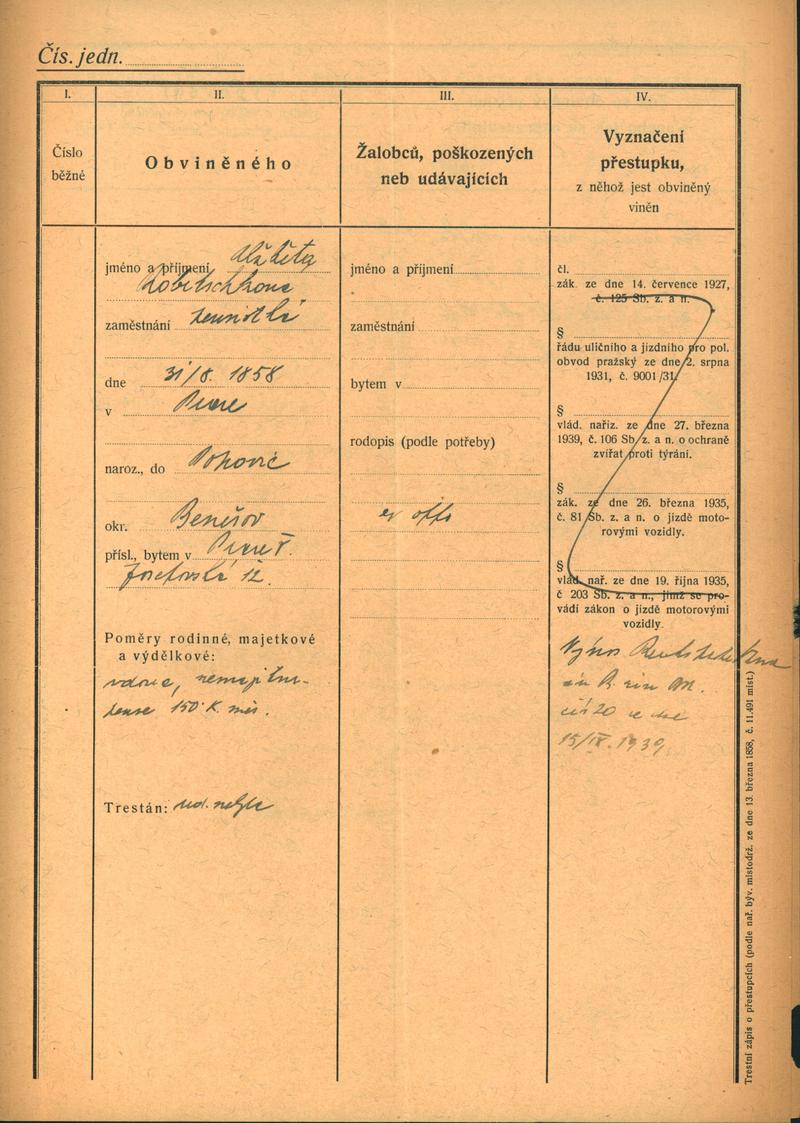 Čís. jedn.
I.
II.
III.
IV.
Číslo
běžné
Obviněného
Žalobců, poškozených
neb udávajících
Vyznačení
přestupku,
z něhož jest obviněný
viněn
jméno a příjmení Alžběta
zaměstnání
dne 31/8. 1858
v
naroz., do
okr. Benešov
přísl., bytem v
Josefovská 12.
Poměry rodinné, majetkové
a výdělkové:
vdova,
150 K měs.
Trestán:
jméno a příjmení
zaměstnání
bytem v
rodopis (podle potřeby)
čl.
zák. ze dne 14. července 1927,
č. 125 Sb. z. a n.
§
řádu uličního a jízdního pro pol.
obvod pražský ze dne 2. srpna
1931, č. 9001/31.
§
vlád. naříz. ze dne 27. března
1939, č. 106 Sb. z. a n. o ochraně
zvířat proti týrání.
§
zák. ze dne 26. března 1935,
č. 81 Sb. z. a n. o jízdě moto-
rovými vozidly.
§
vlád. nař. ze dne 19. října 1935,
č 203 Sb. z. a n., jímž se pro-
vádí zákon o jízdě motorovými
vozidly.
Výnos
ze dne
15/IX. 1939
Trestní zápis o přestupcích (podle nař. býv. místodrž. ze dne 13. března 1858, č. 11.491 míst.)